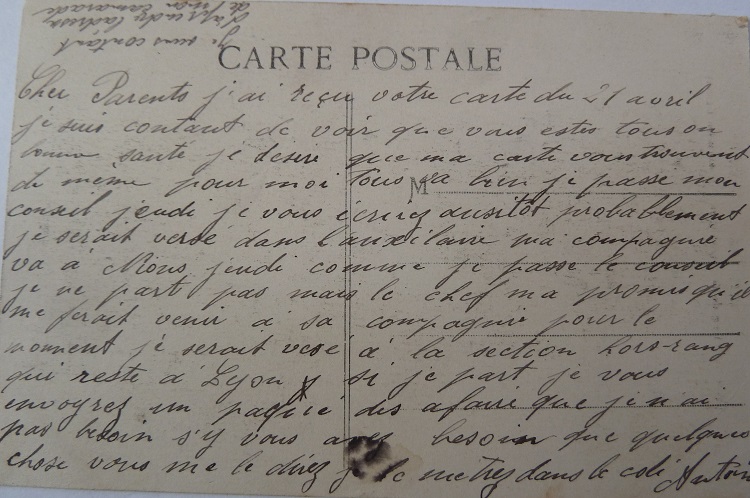 je suis contant
d'aprendre
de mon camarade
CARTE POSTALE
Cher Parents j'ai reçu votre carte du 21 avril
je suis contant de voir que vous estes tous on
bonne santé je desire que ma carte vous trouvent
de meme pour moi tous va bien je passe mon
M
conseil jeudi je vous écrirez ausitôt probablement
je serait versé dans l'auxilaire ma compagnie
va à jeudi comme je passe le conseil
je ne part pas mais le chef ma promus qu'il
me ferait venir a sa compagnie pour le
moment je serait versé à la section hors-rang
qui reste à Lyon si je part je vous
envoyrez un paquié des afaire que je n'ai
pas besoin s'y vous avez besoin que quelques
chose vous me le direz je le metrez dans le coli Antoin